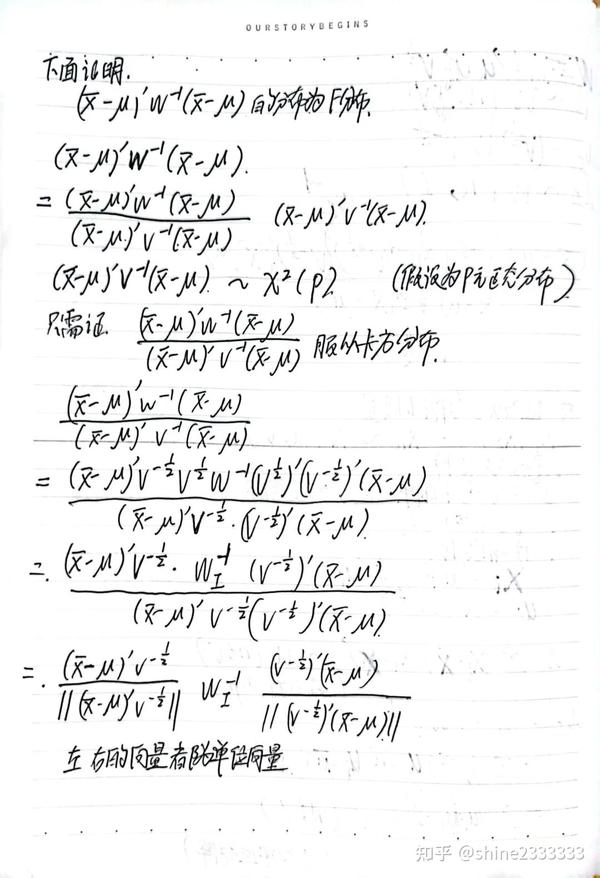 OURSTORYBEGINS
下面证明.
(x̄-μ)′W⁻¹(x̄-μ) 的分布为F分布.
(x̄-μ)′W⁻¹(x̄-μ).
= \frac{(x̄-μ)′W⁻¹(x̄-μ)}{(x̄-μ)′V⁻¹(x̄-μ)} (x̄-μ)′V⁻¹(x̄-μ).
(x̄-μ)′V⁻¹(x̄-μ). ~ χ²(p). (假设为p元正态分布)
只需证 \frac{(x̄-μ)′W⁻¹(x̄-μ)}{(x̄-μ)′V⁻¹(x̄-μ)} 服从卡方分布.
\frac{(x̄-μ)′W⁻¹(x̄-μ)}{(x̄-μ)′V⁻¹(x̄-μ)}
= \frac{(x̄-μ)′V^{-\frac{1}{2}}V^{\frac{1}{2}}W⁻¹(V^{\frac{1}{2}})′(V^{-\frac{1}{2}})′(x̄-μ)}{(x̄-μ)′V^{-\frac{1}{2}}·(V^{-\frac{1}{2}})′(x̄-μ)}
= \frac{(x̄-μ)′V^{-\frac{1}{2}}· W_I^{-1} (V^{-\frac{1}{2}})′(x̄-μ)}{(x̄-μ)′V^{-\frac{1}{2}}(V^{-\frac{1}{2}})′(x̄-μ)}
= \frac{(x̄-μ)′V^{-\frac{1}{2}}}{||(x̄-μ)′V^{-\frac{1}{2}}||} W_I^{-1} \frac{(V^{-\frac{1}{2}})′(x̄-μ)}{||(V^{-\frac{1}{2}})′(x̄-μ)||}
左右的向量都为单位向量
知乎 @shine2333333